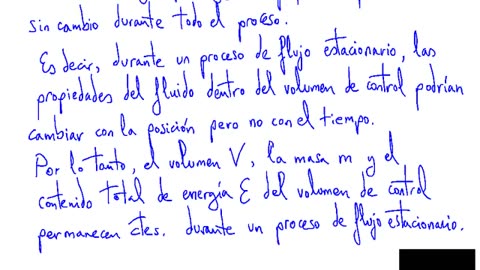 sin cambio durante todo el proceso.
Es decir, durante un proceso de flujo estacionario, las
propiedades del fluido dentro del volumen de control podrían
cambiar con la posición pero no con el tiempo.
Por lo tanto, el volumen V, la masa m y el
contenido total de energía E del volumen de control
permanecen ctes. durante un proceso de flujo estacionario.